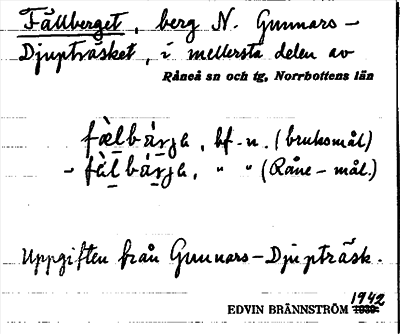 Fällberget, berg N. Gunnars-
Djupträsket, i mellersta delen av
Råneå sn och tg, Norrbottens län
fælbárja, bf. n. (bruksmål)
- fàlbárja, " " (Råne-mål.)
Uppgiften från Gunnars-Djupträsk.
1942
EDVIN BRÄNNSTRÖM 1939